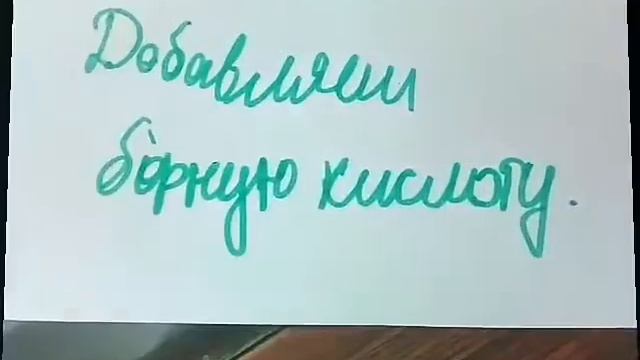 Добавляем
борную кислоту.